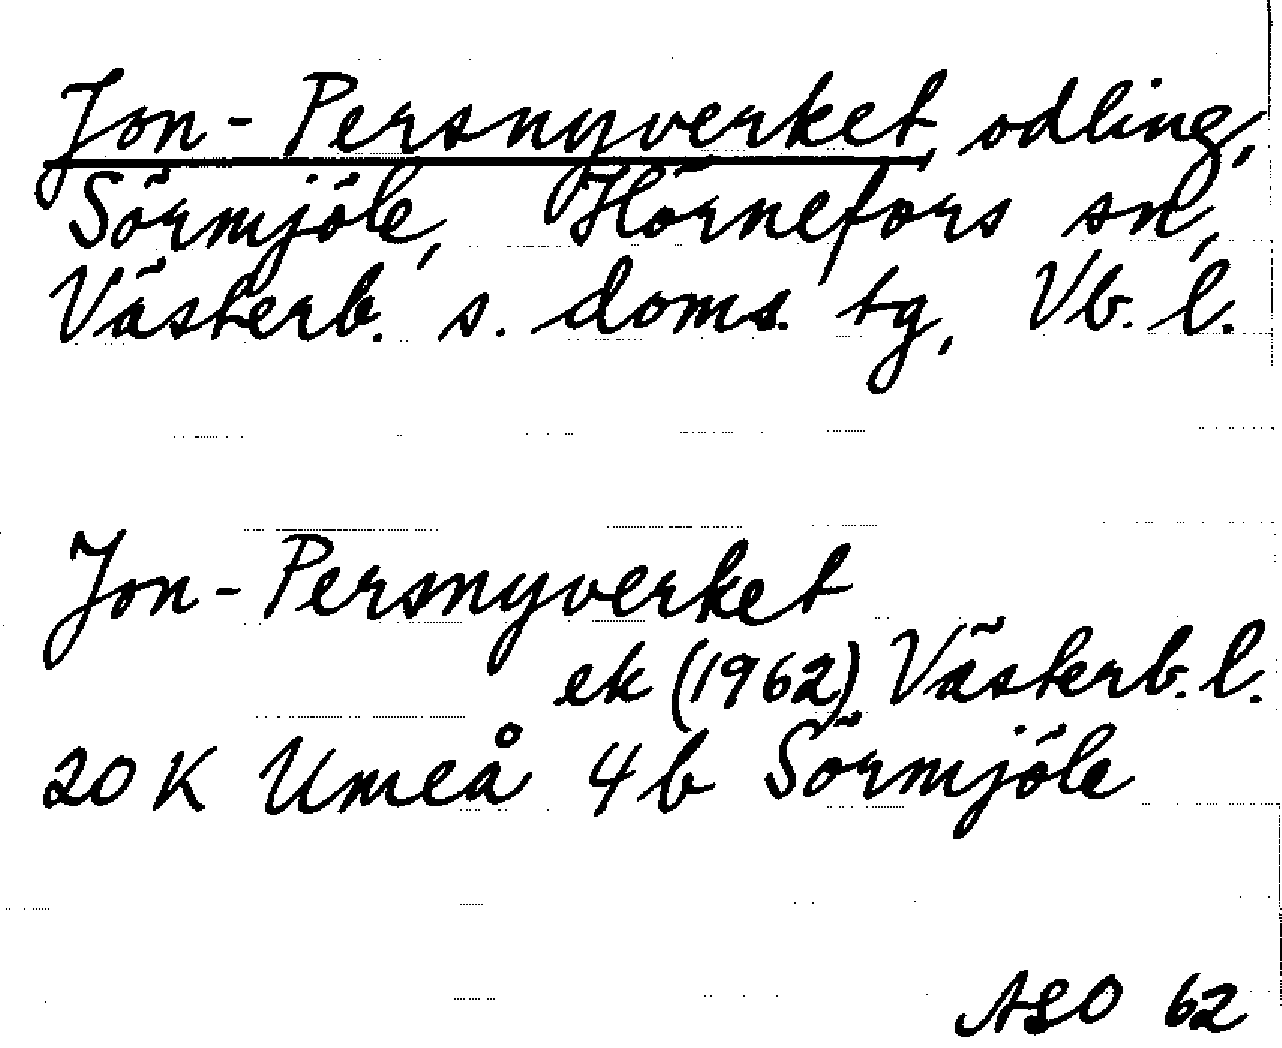 Jon-Persnyverket, odling,
Sörmjöle, Hörnefors sn,
Västerb. s. doms. tg, Vb. l.
Jon-Persnyverket
ek (1962) Västerb. l.
20 K Umeå 4 b Sörmjöle
ASO 62